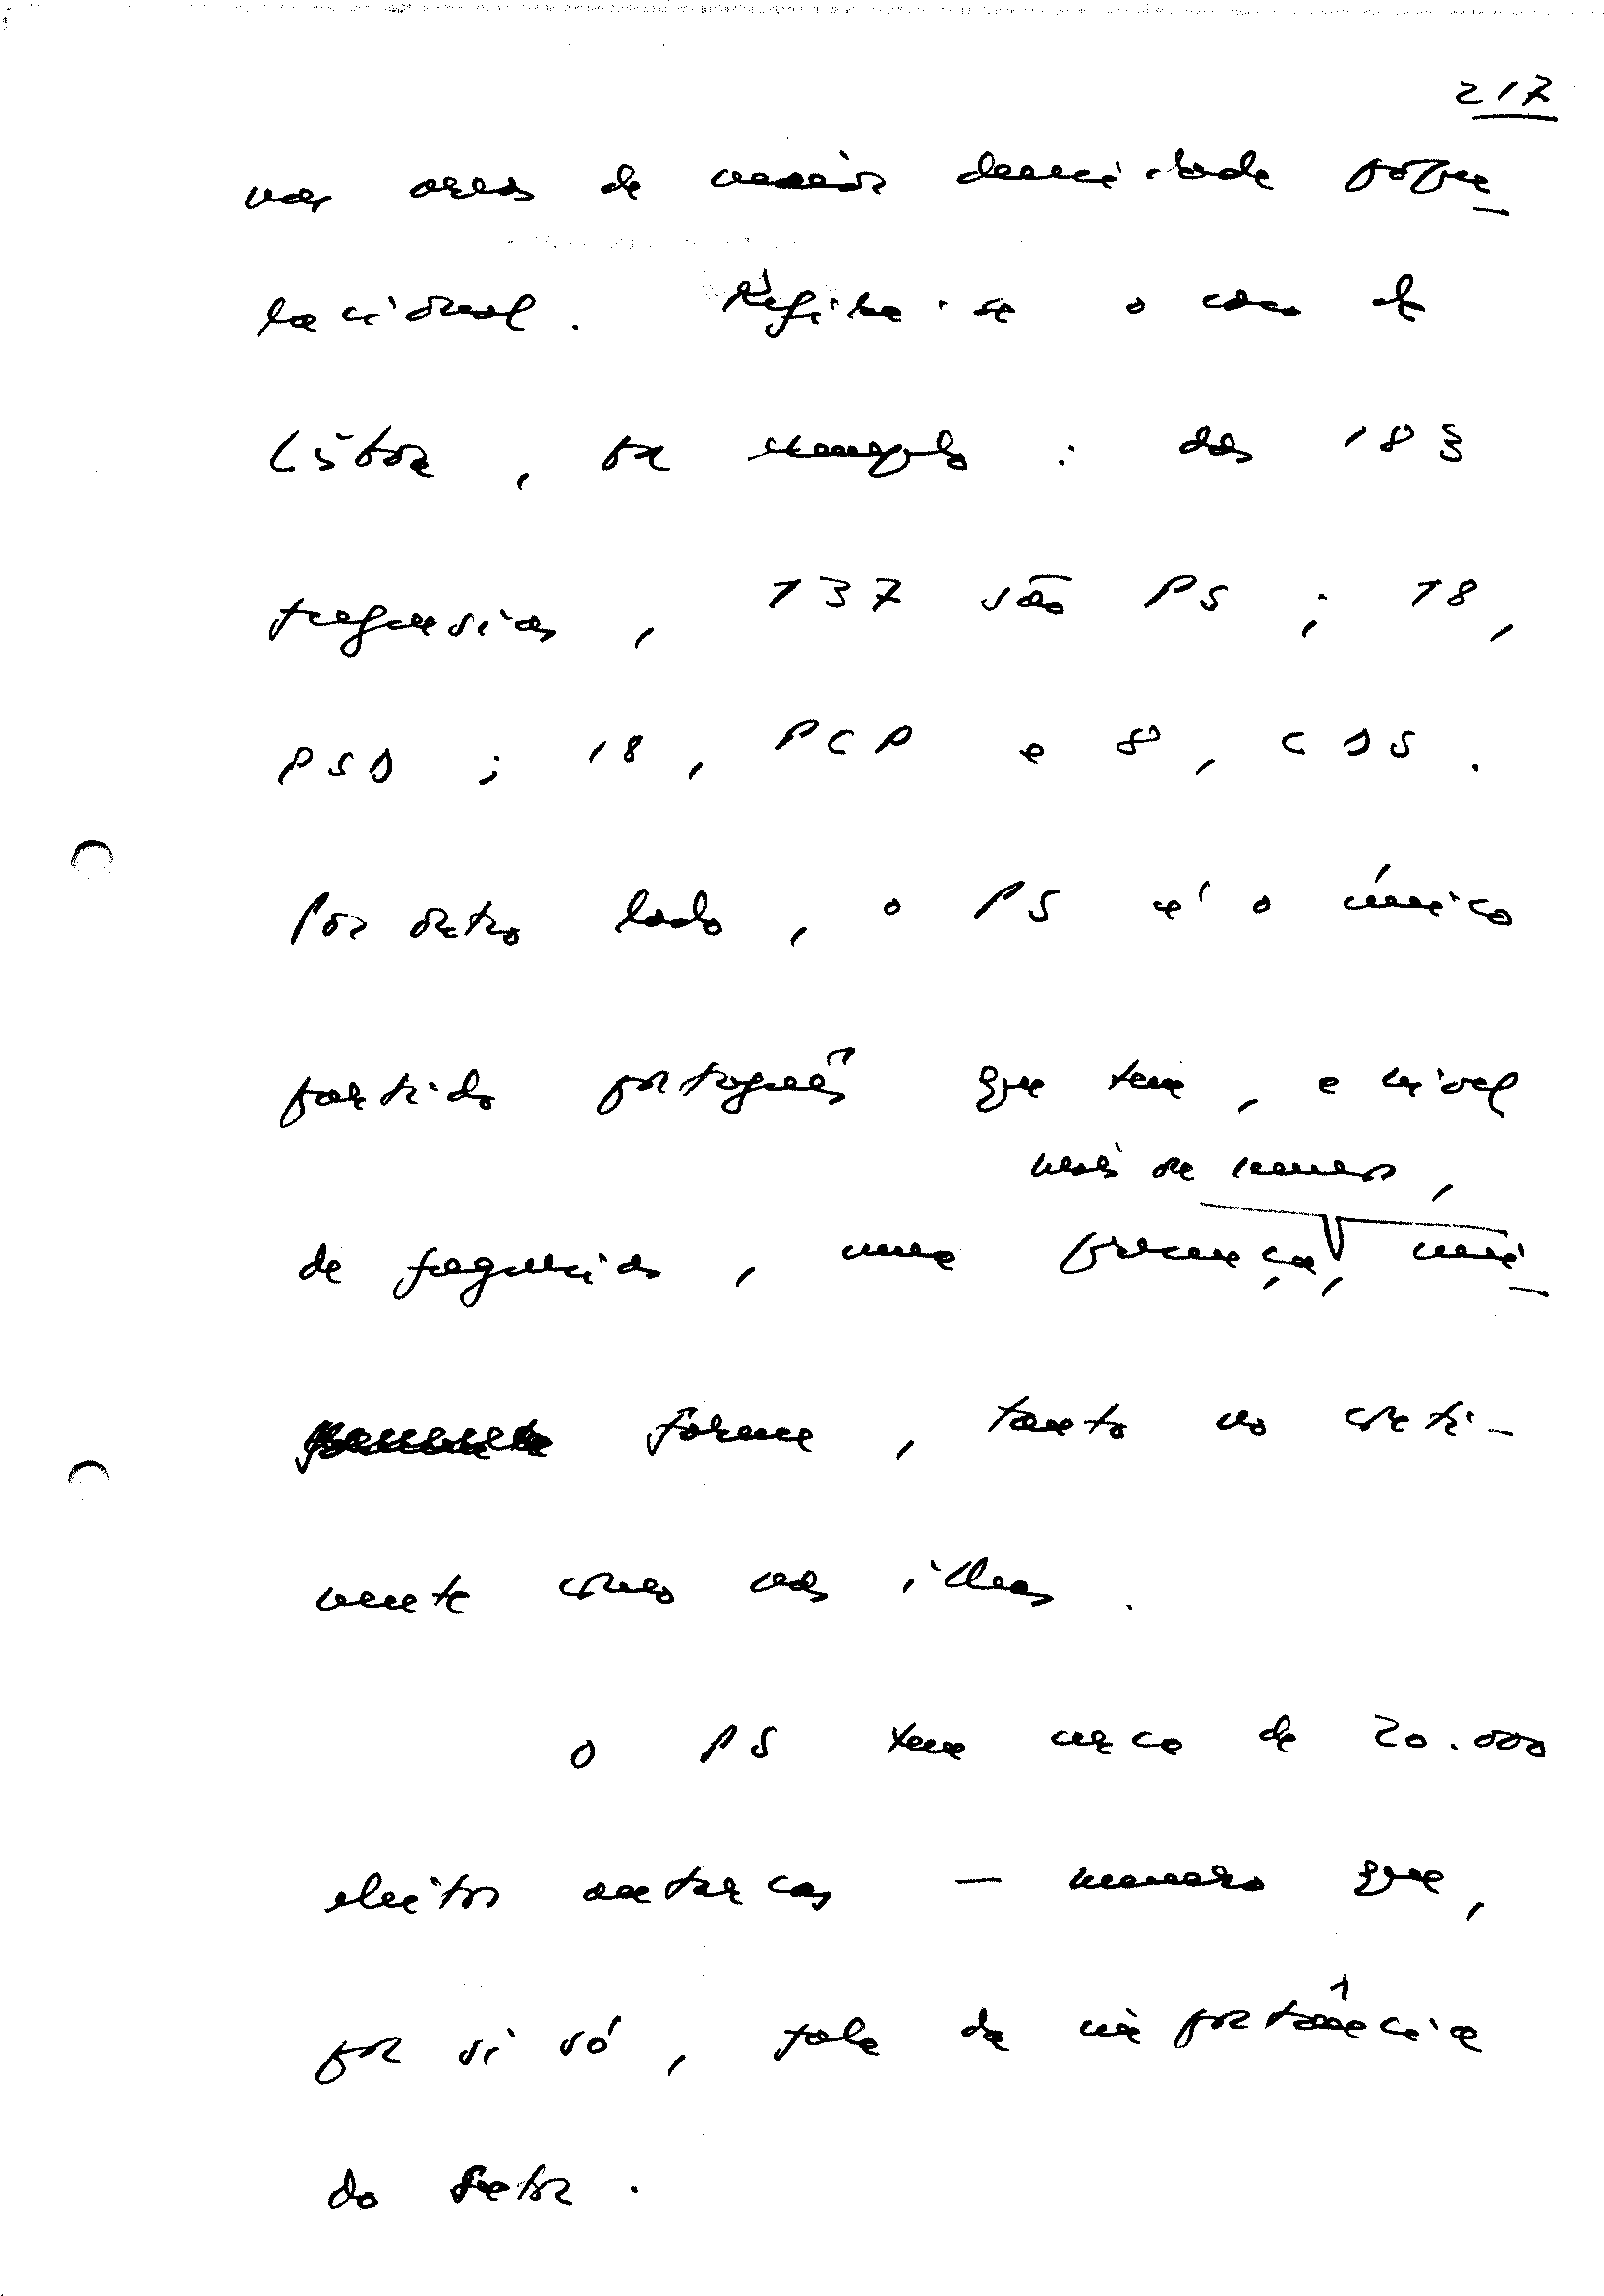 217
nas areas de maior densidade popu-
lacional. Refira-se o caso de
Lisboa, por exemplo: das 183
freguesias, 137 são PS; 18,
PSD; 18, PCP e 8, CDS.
Por outro lado, o PS é o único
partido português que tem, a nível
mais ou menos,
de freguesias, uma presença, uni-
forme, tanto no conti-
nente como nas ilhas.
O PS tem cerca de 20.000
eleitos autarcas — número que,
por si só, fala da importância
do sector.